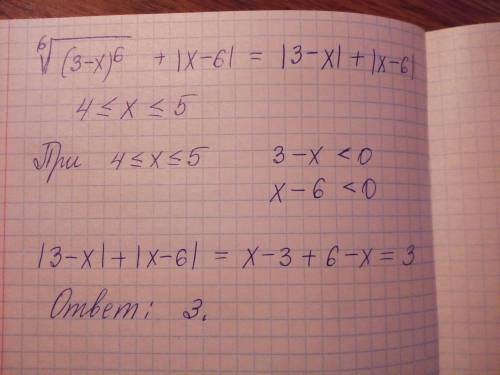 ⁶√(3-x)⁶ + |x-6| = |3-x| + |x-6|
4 ≤ x ≤ 5
При 4 ≤ x ≤ 5 3-x < 0
x-6 < 0
|3-x| + |x-6| = x-3+6-x = 3
Ответ: 3.